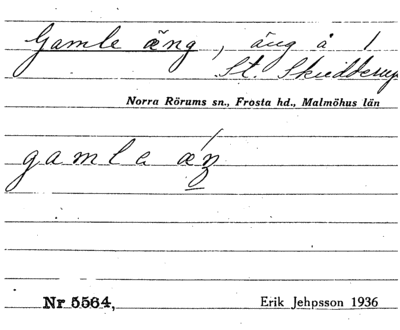 Gamle äng, äng å 1
St. Skudderup
Norra Rörums sn., Frosta hd., Malmöhus län
gamla æŋ
Nr 5564,
Erik Jehpsson 1936